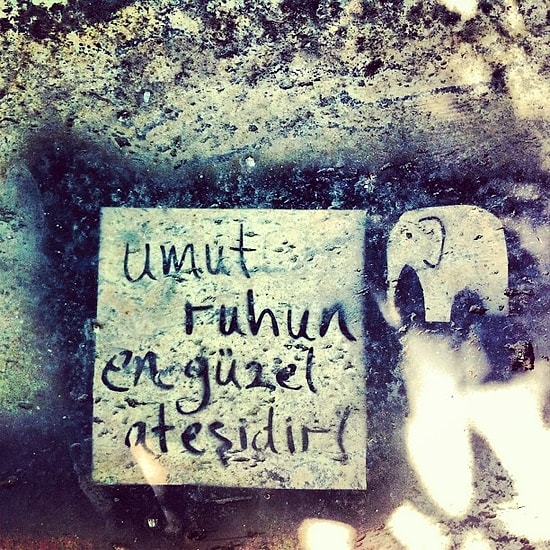 umut
ruhun
en güzel
ateşidir!